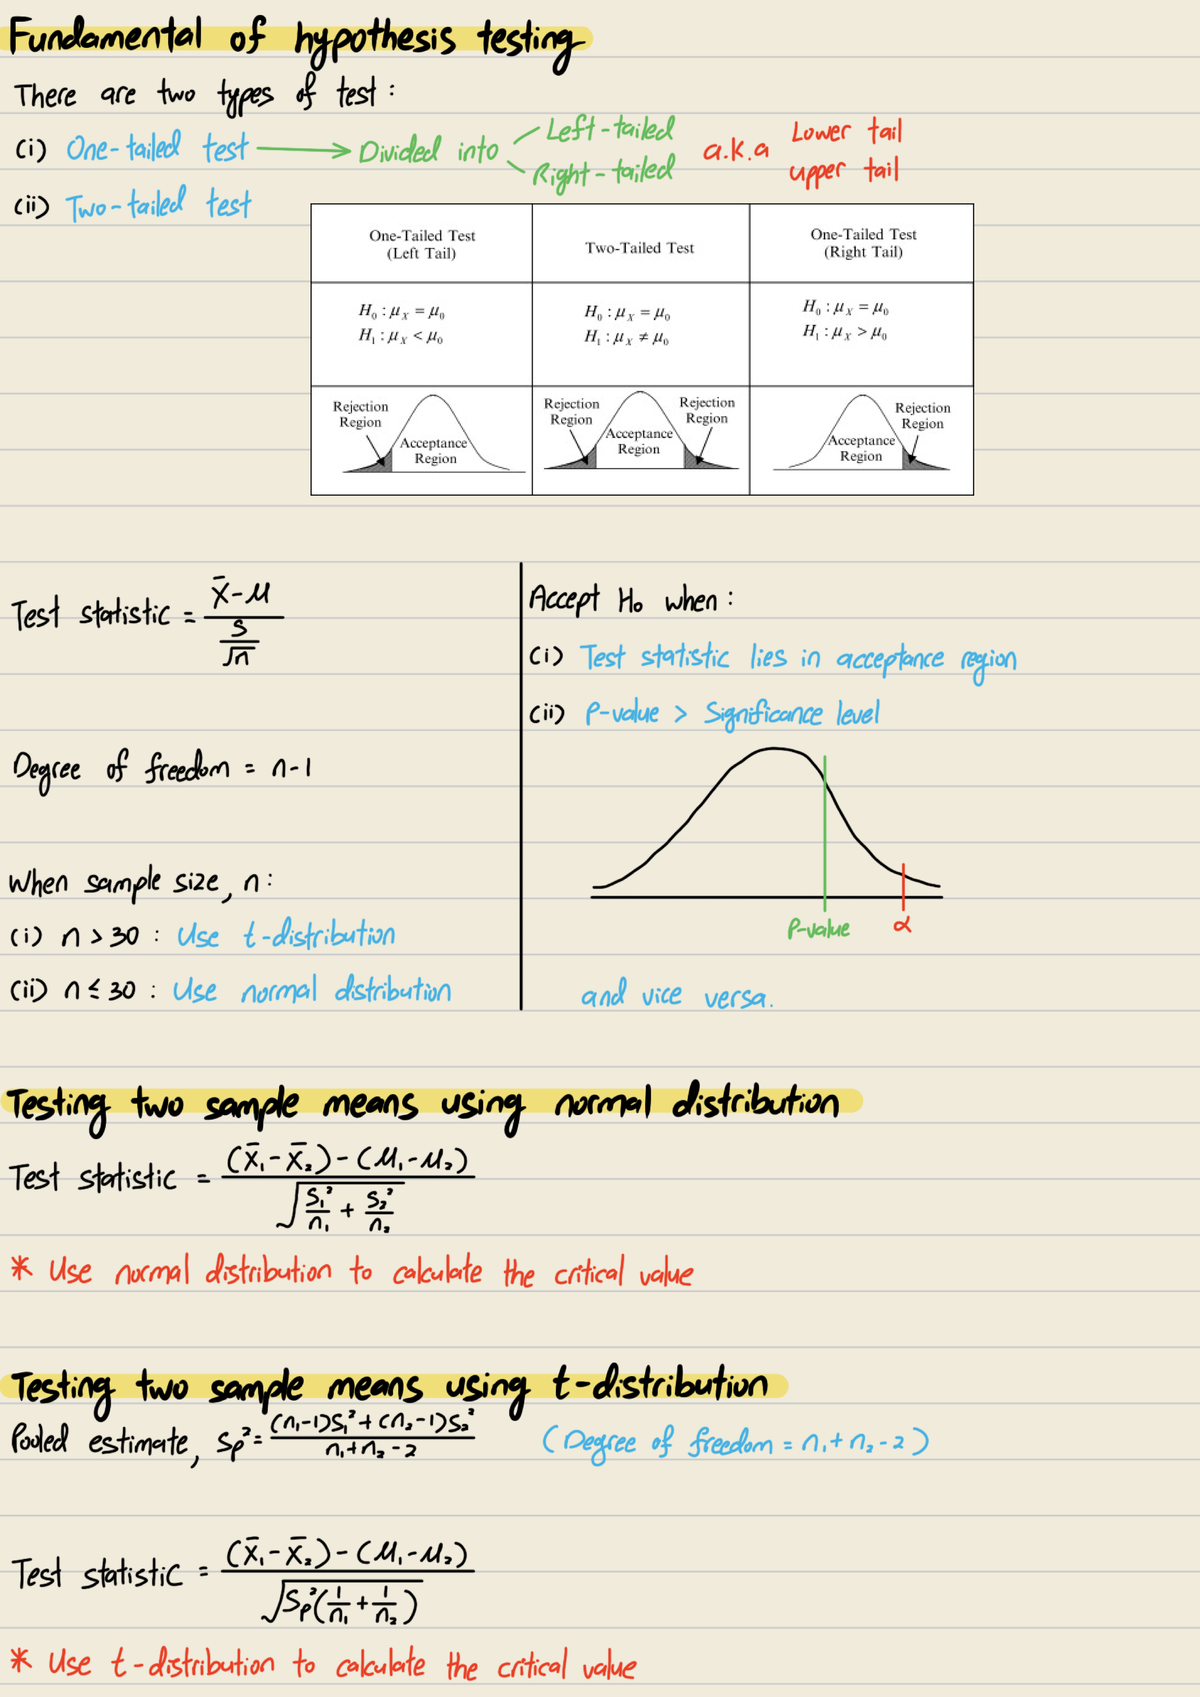 Fundamental of hypothesis testing
There are two types of test :
(i) One-tailed test → Divided into Left-tailed a.k.a Lower tail
Right-tailed upper tail
(ii) Two-tailed test
One-Tailed Test
(Left Tail)
Two-Tailed Test
One-Tailed Test
(Right Tail)
H₀ : μ_X = μ₀
H₁ : μ_X < μ₀
H₀ : μ_X = μ₀
H₁ : μ_X ≠ μ₀
H₀ : μ_X = μ₀
H₁ : μ_X > μ₀
Rejection
Region
Acceptance
Region
Rejection
Region
Acceptance
Region
Rejection
Region
Acceptance
Region
Rejection
Region
Test statistic = (x̄-μ)/(s/√n)
Degree of freedom = n-1
When sample size, n :
(i) n > 30 : Use t-distribution
(ii) n ≤ 30 : Use normal distribution
Accept H₀ when :
(i) Test statistic lies in acceptance region
(ii) P-value > Significance level
P-value α
and vice versa.
Testing two sample means using normal distribution
Test statistic = ((x̄₁-x̄₂)-(μ₁-μ₂))/√(s₁²/n₁ + s₂²/n₂)
* Use normal distribution to calculate the critical value
Testing two sample means using t-distribution
Pooled estimate, Sp² = ((n₁-1)S₁²+(n₂-1)S₂²)/(n₁+n₂-2) (Degree of freedom = n₁+n₂-2)
Test statistic = ((x̄₁-x̄₂)-(μ₁-μ₂))/√(Sp²(1/n₁+1/n₂))
* Use t-distribution to calculate the critical value